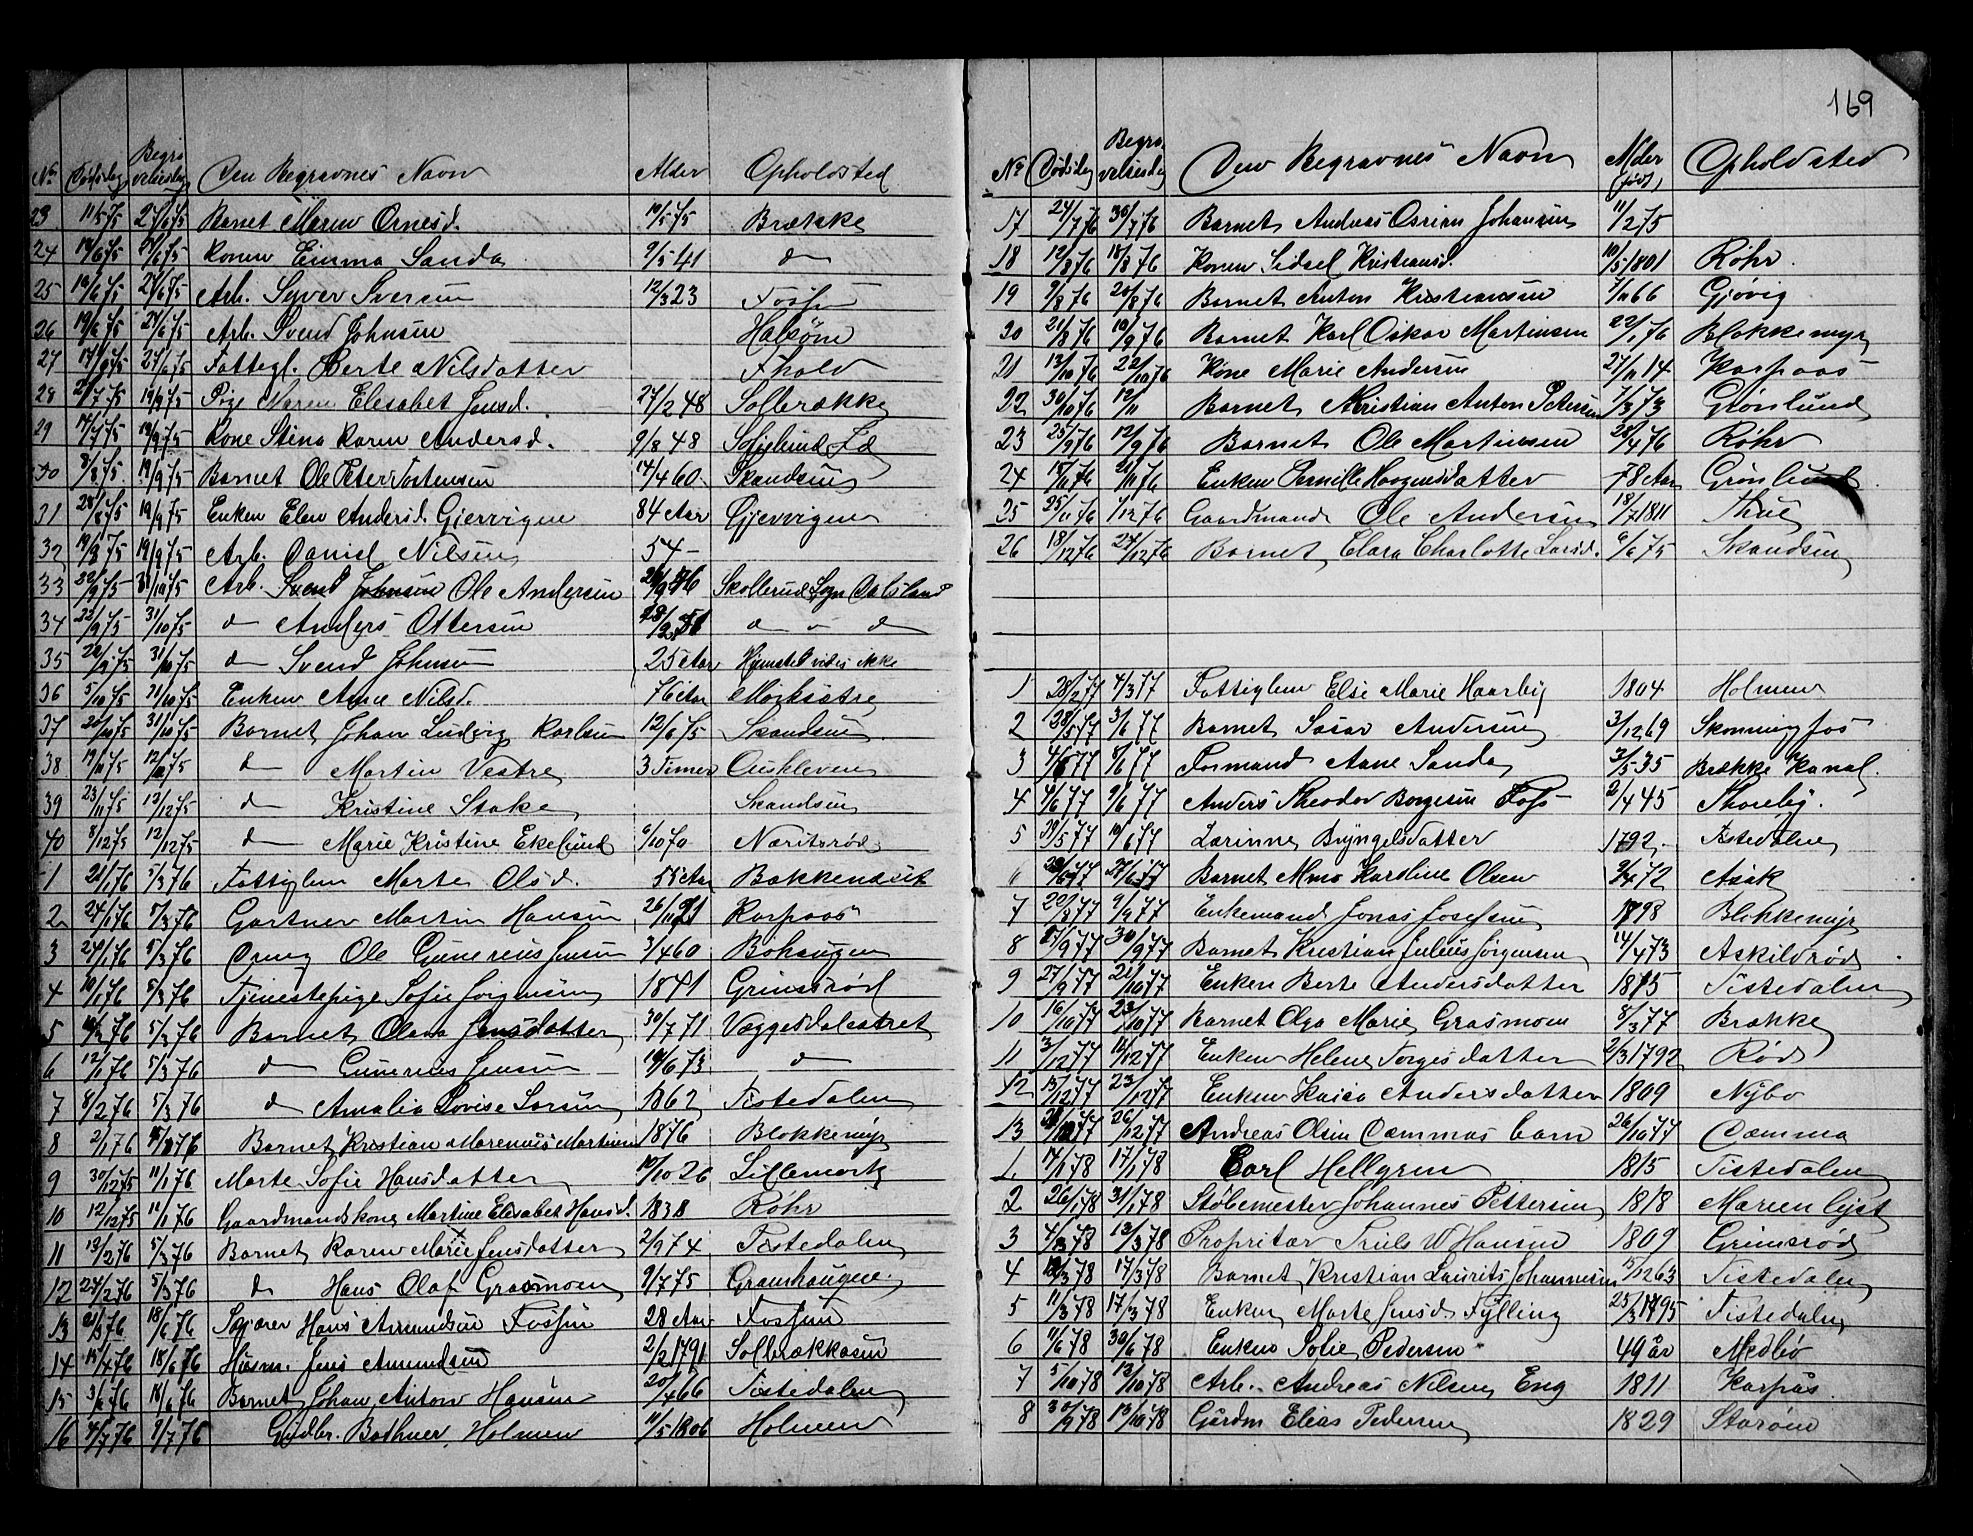 169
No Dødsdag Begravelsesdag Den Begravnes Navn Alder Opholdsted
23 11/5 75 27/6 75 Barnet Maren Ornesd. 10/5 75 Brække
24 14/6 75 27/6 75 Konen Emma Sanda 9/5 41 do
25 19/6 75 27/6 75 Arb. Syver Iversen 12/3 23 Fossen
26 19/6 75 27/6 75 Arb. Svend Johnsen
27 17/6 75 27/6 75 Fattigl. Berte Nilsdatter
28 19/9 75 Pige Karen Elisabet Jensd. 27/2 48 Solbrække
29 19/9 75 Kone Stina Karen Andersd. 9/8 48
30 8/8 75 19/9 75 Barnet Ole Peter Tostensen 14/4 60 Skandsen
31 28/8 75 19/9 75 Enken Elen Andersd. Gjervigen 84 Aar Gjervigen
32 19/8 75 19/9 75 Arb. Daniel Nilsen 54 –
33 22/9 75 31/10 75 Arb. Svend Johnsen Ole Andersen Skollerud Sogn Dalsland
34 22/9 75 31/10 75 do Anders Ottersen do " do
35 22/9 75 31/10 75 do Svend Johnsen 25 Aar Hjemsted vides ikke
36 5/10 75 31/10 75 Enken Anne Nilsd. 76 Aar Morksætre
37 31/10 75 Barnet Johan Ludvig Karlsen 12/6 75 Skandsen
38 19/11 75 12/12 75 do Martin Vestre 3 Timer Auskleven
39 23/11 75 12/12 75 do Kristine Stake Skandsen
40 8/12 75 12/12 75 do Marie Kristine Ekelund 6/10 70 Næritsrød
1 21/1 76 5/3 76 Fattiglem Marte Olsd. 55 Aar Bakkenæset
2 27/1 76 5/3 76 Gartner Martin Hansen 26/11 21 Karpaas
3 24/1 76 5/3 76 Dreng Ole Gunerius Jensen 3/4 60 Bohaugen
4 10/1 76 5/3 76 Tjenestepige Sofie Jørgensen 1841 Grimsrød
5 5/3 76 Barnet Olava Jensdatter 30/7 71 Veggesdalsætret
6 12/1 76 5/3 76 do Gunerius Jensen 14/6 73 do
7 8/2 76 5/3 76 do Amalia Lovise Larsen 1862 Tistedalen
8 2/1 76 Barnet Kristian Marenius Martinsen 1876 Blokkemyr
9 30/12 75 11/1 76 Marte Sofie Hansdatter 10/10 26 Lillemark
10 12/12 75 11/1 76 Gaardmandskone Martine Elisabet Hansd. 1838 Røhr
11 13/2 76 5/3 76 Barnet Karen Marie Jensdatter 2/9 74 Tistedalen
12 24/2 76 5/3 76 do Hans Olaf Grasmoen 9/7 75 Granhaugene
13 21/3 76 18/6 76 Hans Amundsen Fossen 28 Aar Fossen
14 15/4 76 18/6 76 Husm. Jens Amundsen 2/2 1791 Solbrækkasen
15 3/6 76 18/6 76 Barnet Johan Anton Hansen 20/4 66 Tistedalen
16 4/7 76 9/7 76 Gjødbr. Bothner Holmen 11/5 1806 Holmen
No Dødsdag Begravelsesdag Den Begravnes Navn Alder (født) Opholdsted
17 24/7 76 30/7 76 Barnet Andreas Ossian Johansen 11/2 75
18 12/8 76 18/8 76 Konen Sidsel Kristiansd. 10/5 1801 Røhr
19 9/8 76 20/8 76 Barnet Anton Kristiansen 7/11 66 Gjøvig
20 21/8 76 10/9 76 Barnet Karl Oskar Martinsen 22/1 76 Blokkemyr
21 13/10 76 22/10 76 Kone Marie Andersen 27/11 14 Karpaas
22 30/10 76 12/11 Barnet Kristian Anton Petersen 7/3 73 Grønlund
23 25/9 76 12/9 76 Barnet Ole Martinsen 28/4 76 Røhr
24 15/11 76 21/11 76 Enken Pernille Haagensdatter 78 Aar Grønlund
25 25/11 76 1/12 76 Gaardmand Ole Andersen 18/7 1811
26 18/12 76 24/12 76 Barnet Clara Charlotte Larsd. 6/6 75 Skandsen
1 28/2 77 4/3 77 Fattiglem Else Marie Haarby 1804 Holmen
2 28/5 77 3/6 77 Barnet Andersen 3/12 69 Skonningfos
3 4/6 77 8/6 77 Formand Aane Sanda 3/5 35 Brække Kanal.
4 4/6 77 9/6 77 Anders Theodor Borgesen Foss 2/4 45 Thoreby.
5 30/5 77 10/6 77 Larinne Bryngelsdatter 1792 Tistedalen
6 20/6 77 24/6 77 Barnet Karoline Olsen 9/4 72 Asak
7 9/9 77 Enkemand Jonas Josefsen 1798 Blokkemyr
8 27/9 77 30/9 77 Barnet Kristian Julius Jørgensen 14/4 73 Askildrød
9 27/9 77 21/10 77 Enken Berte Andersdatter Tistedalen
10 16/10 77 23/10 77 Barnet Olga Marie Grasmoen 8/3 77 Brække
11 3/12 77 14/12 77 Enken Helene Torgesdatter 2/3 1792 Rød
12 13/12 77 23/12 77 Enken Kaisa Andersdatter 1809 Nybo
13 26/12 77 Andreas Olsen Dammas barn 26/10 77 Damma
1. 14/1 78 17/1 78 Carl Hellgren 1815 Tistedalen
2 26/1 78 31/1 78 Støbemester Johannes Pettersen 1818 Marienlyst
3 4/3 78 13/3 78 Propritær Truls W Hansen 1809 Grimsrød
4 12/3 78 17/3 78 Barnet Kristian Laurits Johannesen 15/12 63 Tistedalen
5 11/3 78 17/3 78 Enken Marte Jensd. Fylling 25/3 1795 Tistedalen
6 11/6 78 30/6 78 Enken Sofie Pedersen 49 år Medbø
7 5/10 78 13/10 78 Arb. Andreas Nilsen Eng 1811 Karpås
8 30/9 78 13/10 78 Gårdm Elias Pedersen 1829 Storøen